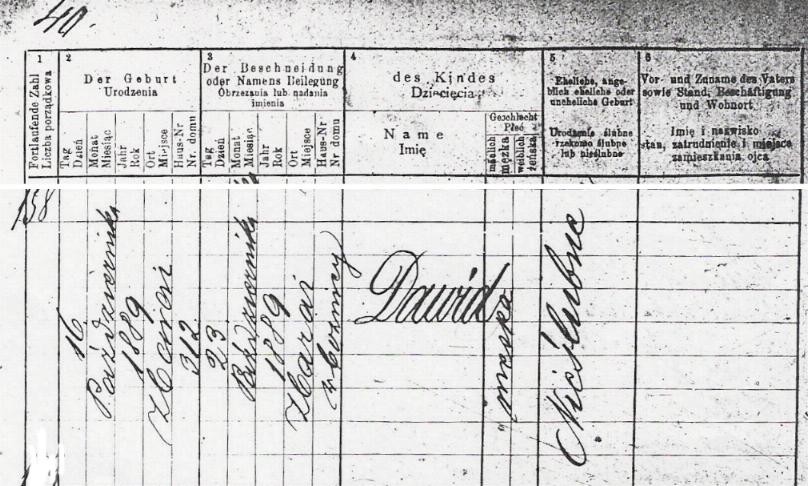 40.
1
Fortlaufende Zahl
Liczba porządkowa
2
Der Geburt
Urodzenia
Tag
Dzień
Monat
Miesiąc
Jahr
Rok
Ort
Miejsce
Haus-Nr
Nr. domu
3
Der Beschneidung
oder Namens Beilegung
Obrzezania lub nadania
imienia
Tag
Dzień
Monat
Miesiąc
Jahr
Rok
Ort
Miejsce
Haus-Nr
Nr. domu
4
des Kindes
Dziecięcia
Name
Imię
Geschlecht
Płeć
männlich
męzka
weiblich
żeńska
5
Eheliche, ange-
blich eheliche oder
uneheliche Geburt
Urodzenie ślubne
rzekomo ślubne
lub nieślubne
6
Vor- und Zuname des Vaters
sowie Stand, Beschäftigung
und Wohnort
Imię i nazwisko
stan, zatrudnienie i miejsce
zamieszkania ojca
158
16
Październik
1889
Zbaraż
312
23
Październik
1889
Zbaraż
w bożnicy
Dawid
męska
Nieślubne